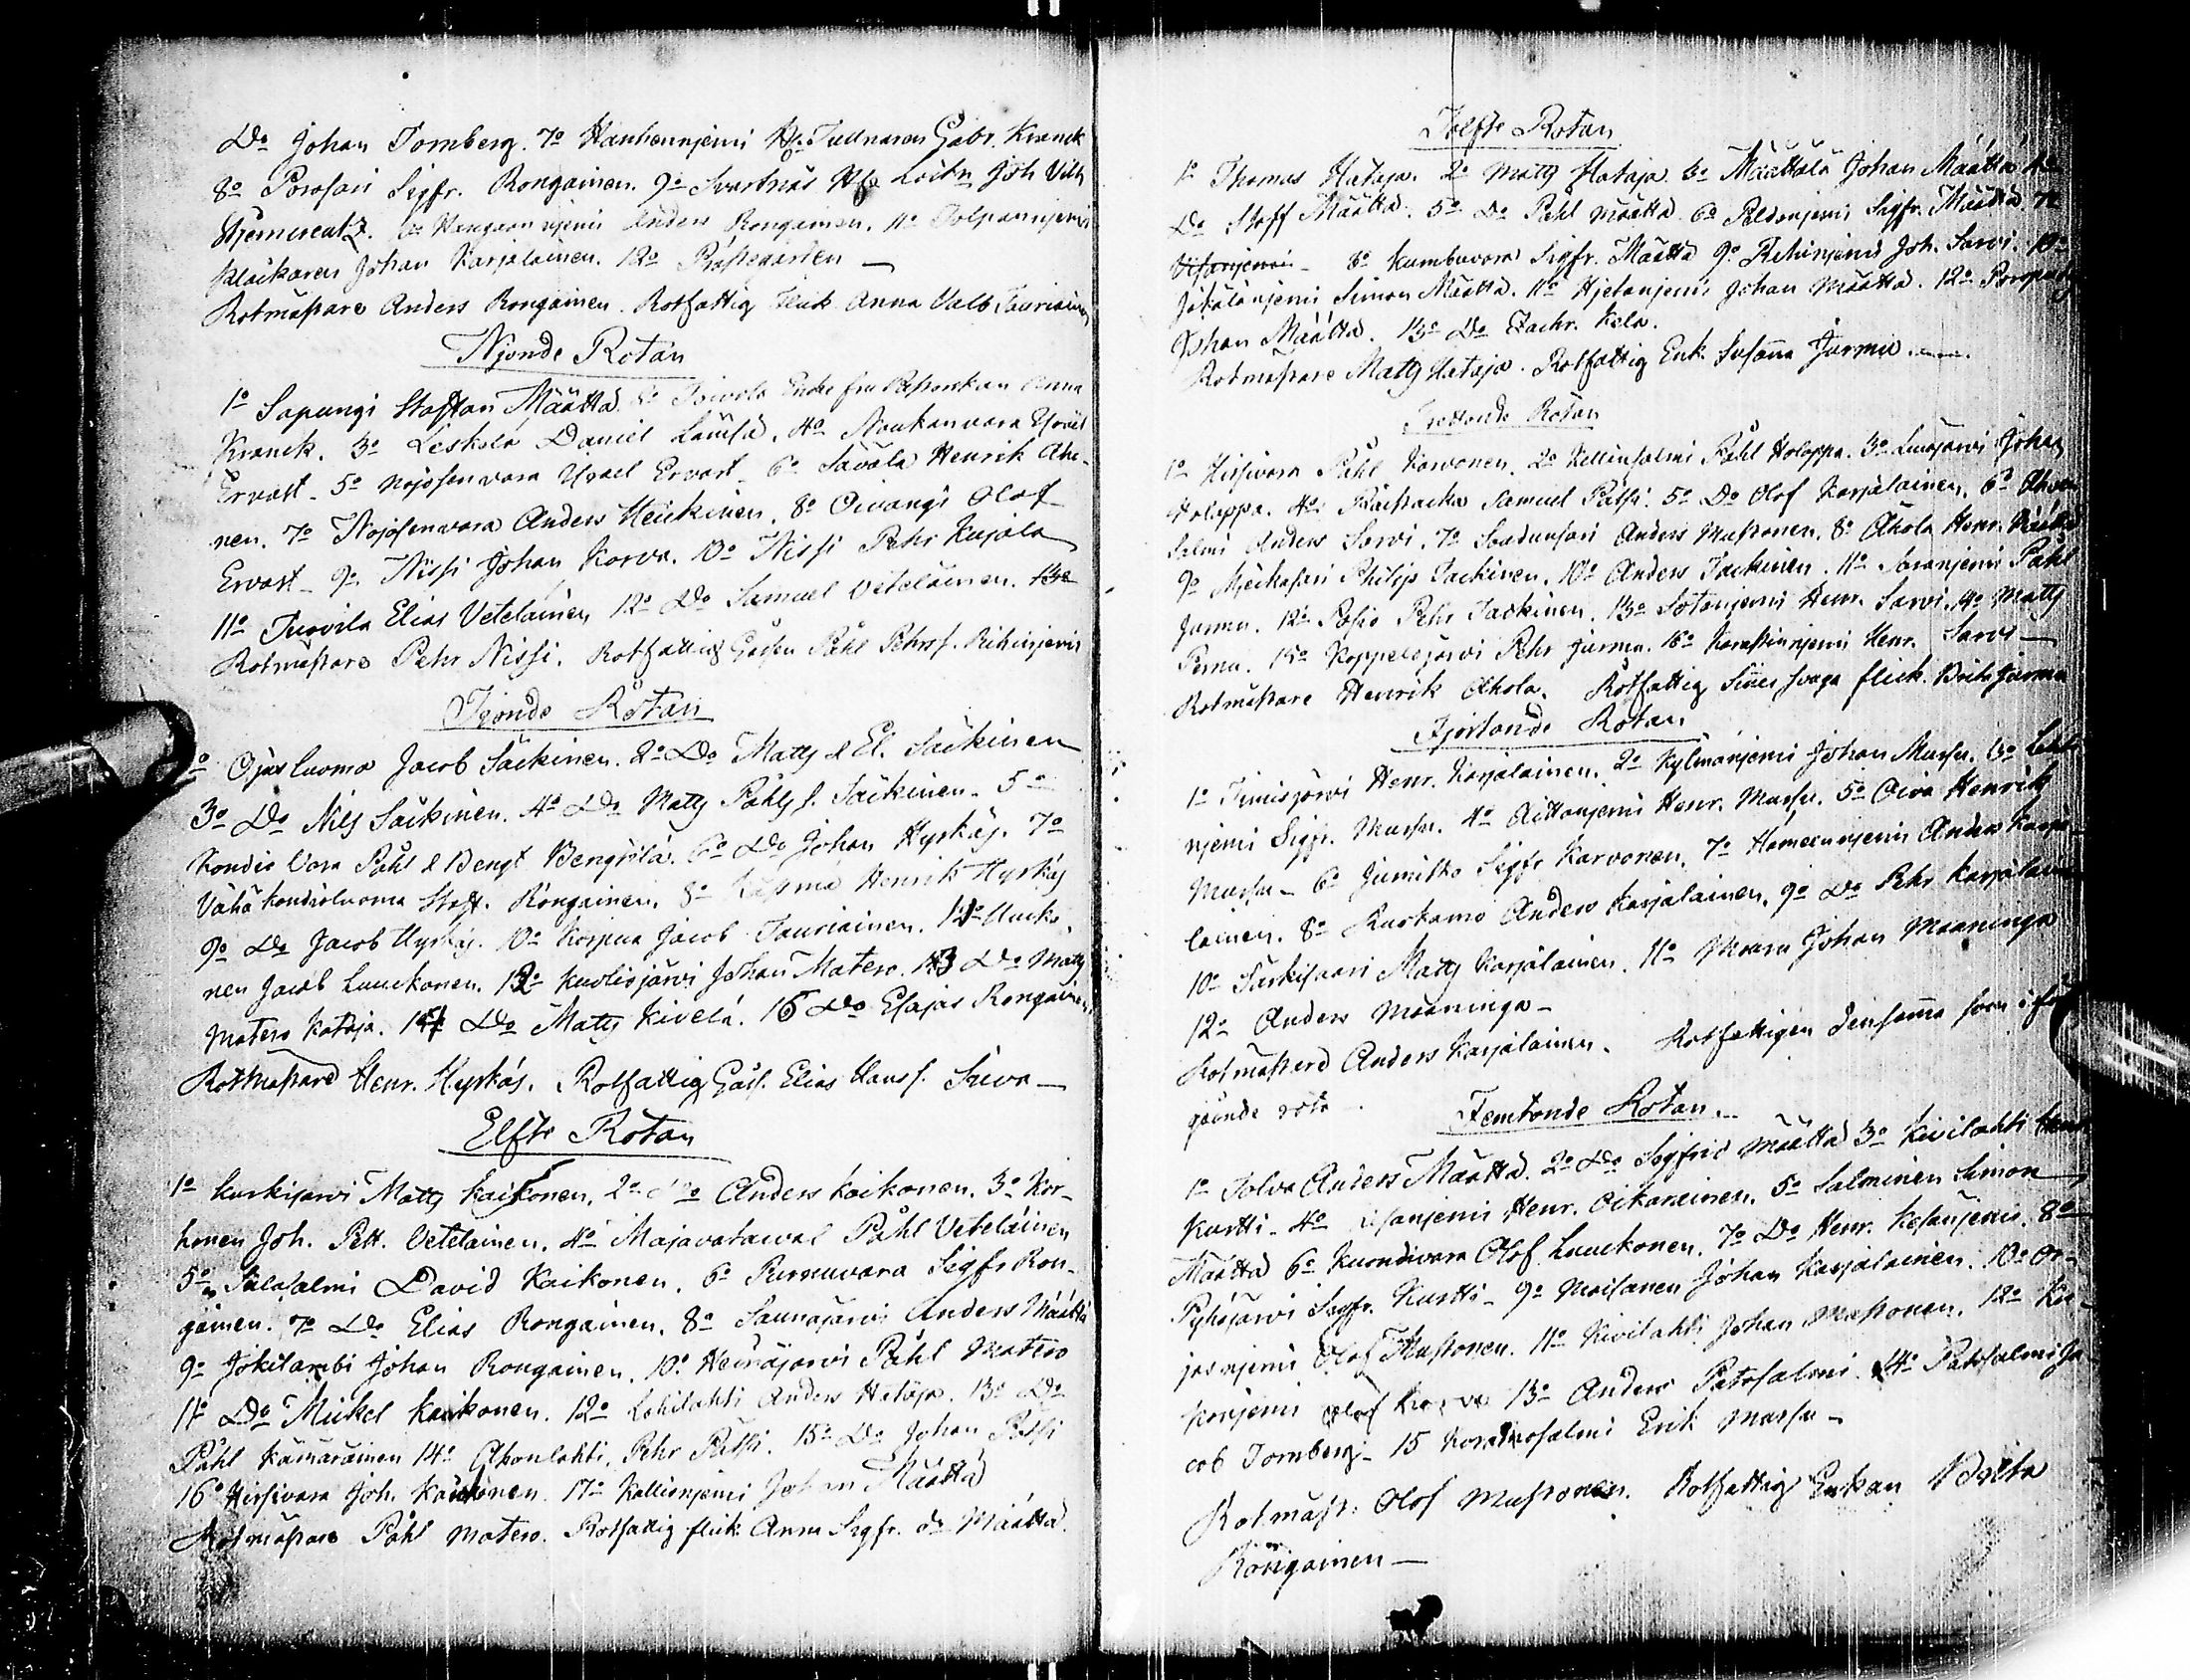 Do Johan Tornberg. 7o Hanhennjemi Hr Tullnären Gabr. Kranck
8o Porosari Sigfr. Rongainen. 9o Svartnäs Hr Löitn Joh Vilh
Stjerncreutz. 10o Hangasnjemi Anders Rongainen. 11o Tolpannjemi
klåckaren Johan Karjalainen. 12o Prästegården —
Rotmästare Anders Rongainen. Rotfattig Flick Anna Valb Tauriainen
Njonde Rotan
1o Sapungi Staffan Määttä. 2o Toivola Enke fru Pastorskan Anna
Kranck. 3o Leskelä Daniel Lämsä. 4o Noukanvara Ysräel
Ervast - 5o Nojosenvara Ysrael Ervast - 6o Säväla Henrik Aho-
nen. 7o Nojosenvara Anders Heickinen. 8o Oivangi Olof
Ervast - 9o Nissi Johan Korva. 10o Nissi Pehr Kujala
11o Turvila Elias Vetelainen 12o Do Samuel Vetelainen. 13o
Rotmästare Pehr Nissi. Rotfattig Gåssen Påhl Pehrss. Riihinjemi
Tjonde Rotan
1o Ojusluoma Jacob Säckinen. 2o Do Matts & El. Säckinen
3o Do Nils Säckinen. 4o Do Matts Påhls s. Säckinen - 5o
Kondio Vara Påhl & Bengt Bengtilä. 6o Do Johan Hyrkäs. 7o
Vähä kondioluoma Staff. Rongainen. 8o Henrik Hyrkäs
9o Do Jacob Hyrkäs. 10o Korpua Jacob Tauriainen. 11o Uucko
nen Jacob Luuckonen. 12o Kuolisjärvi Johan Matero. 13 Do Matts
Matero Kataja. 14 Do Matts Kivelä. 16 Do Esajas Rongainen
Rotmästare Henr. Hyrkäs. Rotfattig Gåss. Elias Hanss. Sieva —
Elfte Rotan
1o Kurkijärvi Matts Kaikonen. 2o Do Anders Kaikonen. 3o Kor-
honen Joh. Pett. Vetelainen. 4o Majavataival Påhl Vetelainen
5o Salasalmi David Kaikonen. 6o Purnuvara Sigfr Ron-
gainen. 7o Do Elias Rongainen. 8o Saunajärvi Anders Määttä
9o Jokilambi Johan Rongainen. 10o Heinäjärvi Påhl Matero
11o Do Mickel Kaikonen. 12o Lohilahti Anders Hataja. 13o Do
Påhl Kämäräinen 14o Ahonlahti. Pehr Pätsi. 15o Do Johan Pätsi
16o Hirsivara Joh. Kaikonen. 17o Kallionjemi Johan Määttä
Rotmästare Påhl Matero. Rotfattig flick Anna Sigfr. dr Määttä.
Tolfte Rotan
1o Thomas Hataja. 2o Matts Hataja. 3o Määttälä Johan Määttä 4o
Do Staff Määttä. 5o Do Påhl Määttä. 6o Peldonjemi Sigfr. Määttä. 7o
Vitanjemi - 8o Kumbuvara Sigfr. Määttä 9o Riihinjemi Joh. Sarvi. 10o
Jokelänjemi Simon Määttä. 11o Hjetanjemi Johan Määttä. 12o
Johan Määttä. 13o Do Zachr. Kela.
Rotmästare Matts Hataja. Rotfattig Enk. Susanna Jurmu
Trettonde Rotan
1o Hirsivara Påhl Karvonen. 2o Kellinsalmi Påhl Holappa. 3o Johan
Holappa. 4o Samuel Pätsi. 5o Do Olof Karjalainen. 6o Ahven
Salmi Anders Sarvi. 7o Anders Mustonen. 8o Ahola Henr.
9o Philip Jackinen. 10o Anders Jackinen. 11o Påhl
Jurmu. 12o Posio Pehr Jackinen. 13o Sotanjemi Henr. Sarvi. 14o Matts
Pernu. 15o Koppelojärvi Pehr Jurmu. 16o Henr. Sarvi —
Rotmästare Henrik Ahola. Rotfattig Sines svaga flick. Brita Jurmu
Fjortonde Rotan
1o Timisjärvi Henr. Karjalainen. 2o Kylmänjemi Johan Mursu. 3o
njemi Sigfr. Mursu. 4o Aittonjemi Henr. Mursu. 5o Oiva Henrik
Mursu - 6o Jumitko Sigfr Karvonen. 7o Hämeennjemi Anders Karja
lainen. 8o Ruokamo Anders Karjalainen. 9o Do Pehr Karjalainen
10o Särkisaari Matts Karjalainen. 11o Johan Maaninga
12o Anders Maaninga -
Rotmästare Anders Karjalainen. Rotfattigen densamma som i före
gående rota —
Femtonde Rotan.
1o Tolva Anders Määttä. 2o Do Sigfrid Määttä 3o Kivilahti Henr
Kurtti - 4o Henr. Oikarainen. 5o Salminen Simon
Määttä 6o Kuondivara Olof Luuckonen. 7o Do Henr. Kesänjemi. 8o
Pyhäjärvi Sigfr. Kurtti - 9o Moilanen Johan Karjalainen. 10o Or-
jasnjemi Olof Mustonen. 11o Kivilahti Johan Mustonen. 12o
konjemi Olof Korva 13o Anders Patosalmi. 14o Patosalmi Ja
cob Tornberg - 15 Erik Mursu -
Rotmäst. Olof Mustonen. Rotfattig Enkan Brita
Rongainen —